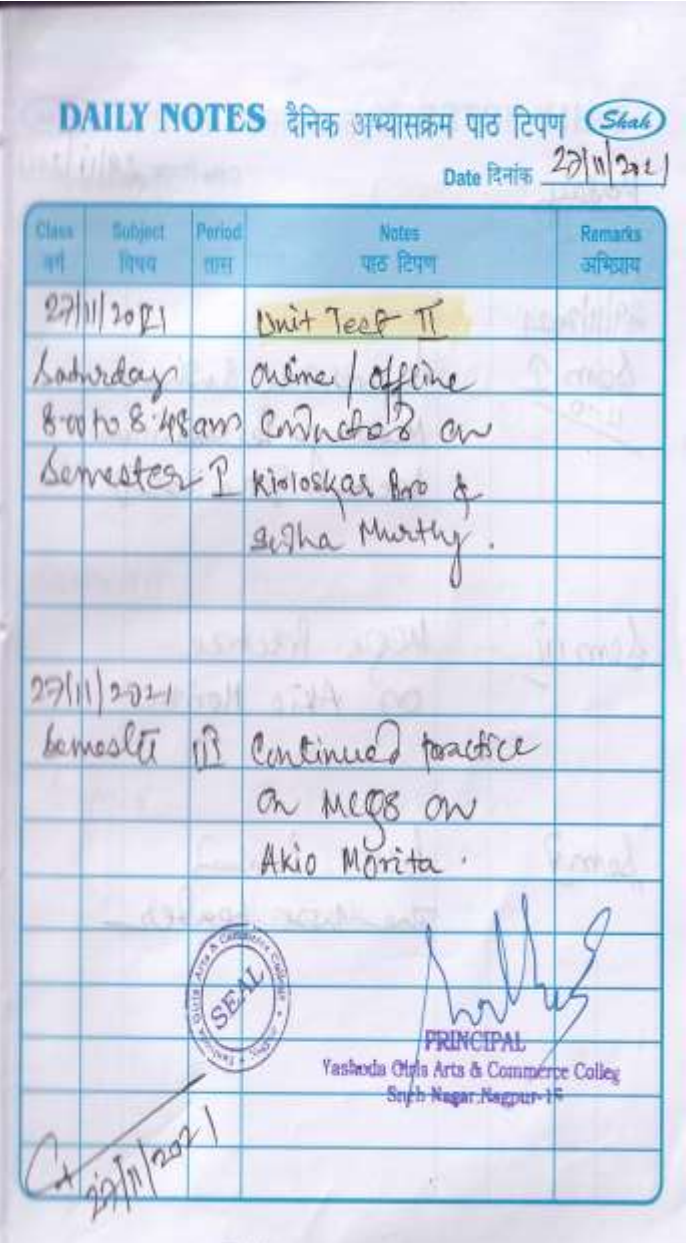 DAILY NOTES दैनिक अभ्यासक्रम पाठ टिपण Shah
Date दिनांक 27/11/2021
Class Subject Period Notes Remarks
वर्ग विषय तास पाठ टिपण अभिप्राय
27/11/2021 Unit Test II
Saturday Online / Offline
8.00 to 8.48 am Conducted on
Semester I Kirloskar Bro &
Sudha Murthy.
27/11/2021
Semester III Continued practice
on MCQs on
Akio Morita.
Arts & Commerce College
SEAL
PRINCIPAL
Yashoda Girls Arts & Commerce Colleg
Sneh Nagar, Nagpur-15
27/11/2021